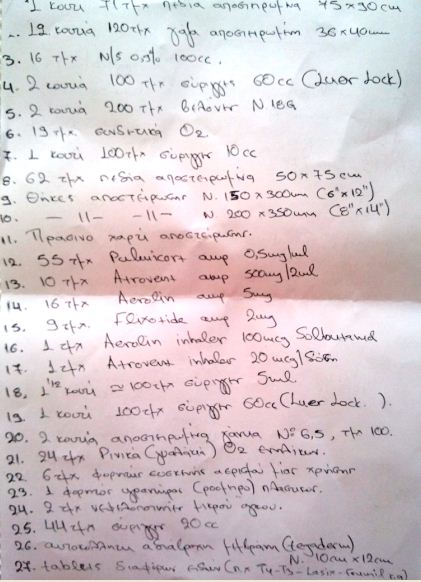 1 κουτί 71 τ/χ πεδία αποστειρωμένα 75 x 90 cm
2. 12 κουτιά 120 τ/χ γάζα αποστειρωμένη 36 x 40 mm
3. 16 τ/χ N/S 0.9% 100cc.
4. 2 κουτιά 100 τ/χ σύριγγες 60cc (Luer Lock)
5. 2 κουτιά 200 τ/χ βελόνες N 18G
6. 19 τ/χ συνδετικά O2
7. 1 κουτί 100 τ/χ σύριγγες 10cc
8. 62 τ/χ πεδία αποστειρωμένα 50 x 75 cm
9. Θήκες αποστείρωσης N. 150 x 300mm (6" x 12")
10. — 11 — — 11 — N 200 x 350mm (8" x 14")
11. Πράσινο χαρτί αποστείρωσης.
12. 55 τ/χ Pulmicort amp 0,5mg/ml
13. 10 τ/χ Atrovent amp 500mg/2ml
14. 16 τ/χ Aerolin amp 5mg
15. 9 τ/χ. Flixotide amp 2mg
16. 1 τ/χ Aerolin inhaler 100mcg Salbutamol
17. 1 τ/χ Atrovent inhaler 20 mcg/δόση
18. 1 1/2 κουτί ≃ 100 τ/χ σύριγγες 5ml
19. 1 κουτί 100 τ/χ σύριγγες 60cc (Luer Lock. ).
20. 2 κουτιά αποστειρωμένα γάντια Nº 6,5, τ/χ 100.
21. 24 τ/χ Ρινικά (γυαλάκια) O2 ενηλίκων.
22. 6 τ/χ φορητές συσκευής αερισμού μιας χρήσης
23. 1 φορητός υγραντήρας πλαστικός.
24. 2 τ/χ νεφελοποιητής μικρού όγκου.
25. 44 τ/χ σύριγγες 20 cc
26. αυτοκόλλητη διάφανη μεμβράνη (tegaderm)
N. 10cm x 12cm
27. tablets διαφόρων ειδών (π.χ Lasix